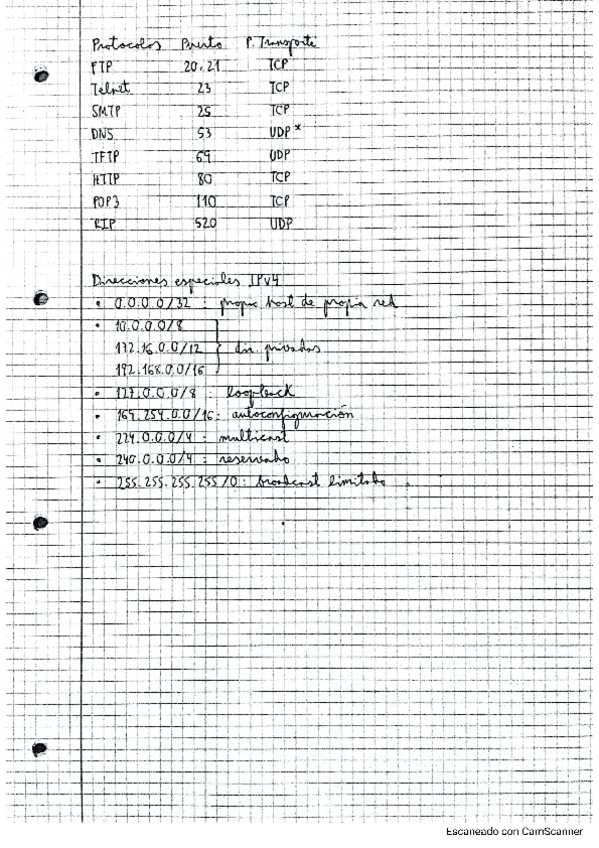 Protocolos Puerto P. Transporte
FTP 20,21 TCP
Telnet 23 TCP
SMTP 25 TCP
DNS 53 UDP*
TFTP 69 UDP
HTTP 80 TCP
POP3 110 TCP
RIP 520 UDP
Direcciones especiales IPv4
• 0.0.0.0/32 : propio host de propia red
• 10.0.0.0/8
172.16.0.0/12 } dir. privadas
192.168.0.0/16
• 127.0.0.0/8 : loopback
• 169.254.0.0/16: autoconfiguración
• 224.0.0.0/4 : multicast
• 240.0.0.0/4 : reservado
• 255.255.255.255/0: broadcast limitado
Escaneado con CamScanner